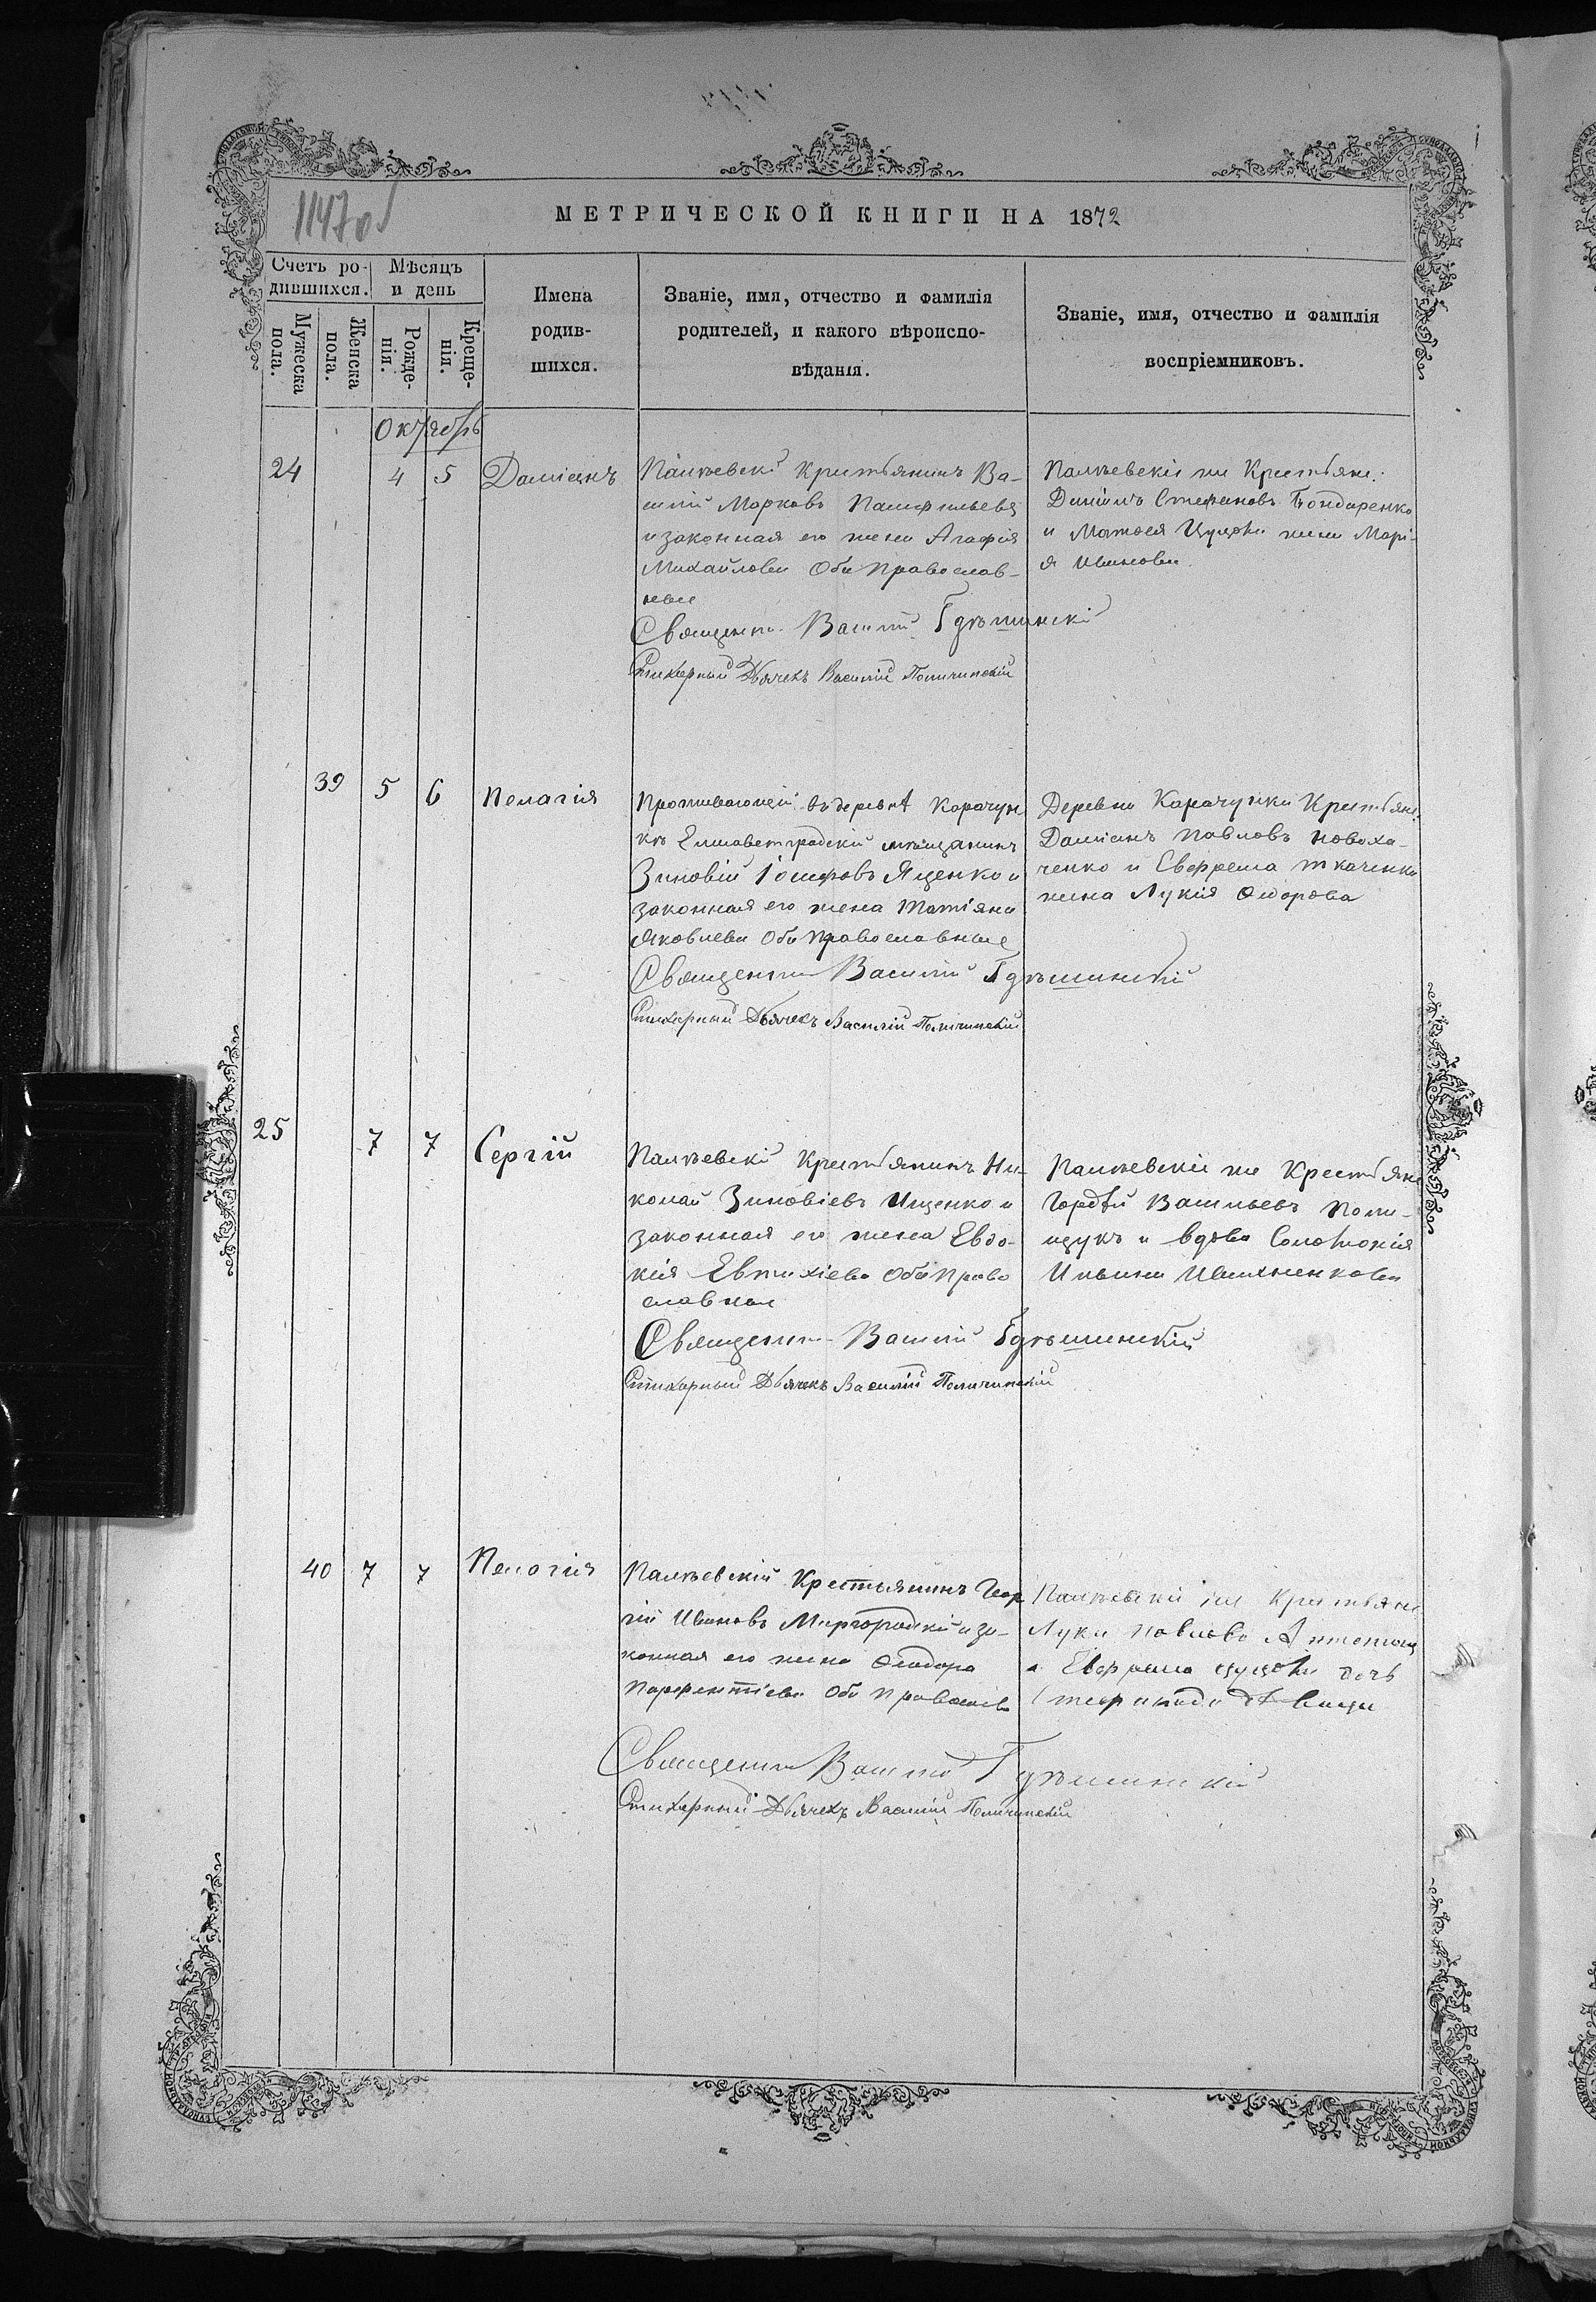 1147об
МЕТРИЧЕСКОЙ КНИГИ НА 1872
Счетъ ро-
дившихся.
Мѣсяцъ
и день
Мужеска
пола.
Женска
пола.
Рожде-
нія.
Креще-
нія.
Имена
родив-
шихся.
Званіе, имя, отчество и фамилія
родителей, и какого вѣроиспо-
вѣданія.
Званіе, имя, отчество и фамилія
воспріемниковъ.
Октябрь
24 4 5 Даміанъ
Крестьянинъ Ва-
силій Марковъ
и законная его жена Агафія
Михайлова Оба Православ-
ные
Священн. Василій
Стихарный Дьячекъ Василій
же Крестьяне:
Даніилъ Стефановъ Бондаренко
и Матѳея жена Марі-
я Иванова.
39 5 6 Пелагія
Проживающій въ деревнѣ Карачун
кѣ Елисаветградскій мѣщанинъ
Зиновій Іосифовъ Яценко и
законная его жена Татіяна
Яковлева Оба Православные
Священн Василій
Стихарный Дьячекъ Василій
Деревни Карачунки Крестьяне:
Даміанъ Павловъ Новоха-
ченко и Евфрема Ткаченка
жена Лукія Ѳедорова
25 7 7 Сергій
Крестьянинъ Ни-
колай Зиновіевъ Ищенко и
законная его жена Евдо-
кія Евтихіева Оба Право
славные
Священн Василій
Стихарный Дьячекъ Василій
же Крестьяне
Гордѣй Васильевъ Поли-
щукъ и вдова Соломонія
40 7 7 Пелагія
Крестьянинъ Геор
гій Ивановъ Миргородскій и за-
конная его жена Ѳеодора
Парфентіева Оба Православ
Священн Василій
Стихарный Дьячекъ Василій
же Крестьяне
Лука Павловъ
и Евфрема дочь